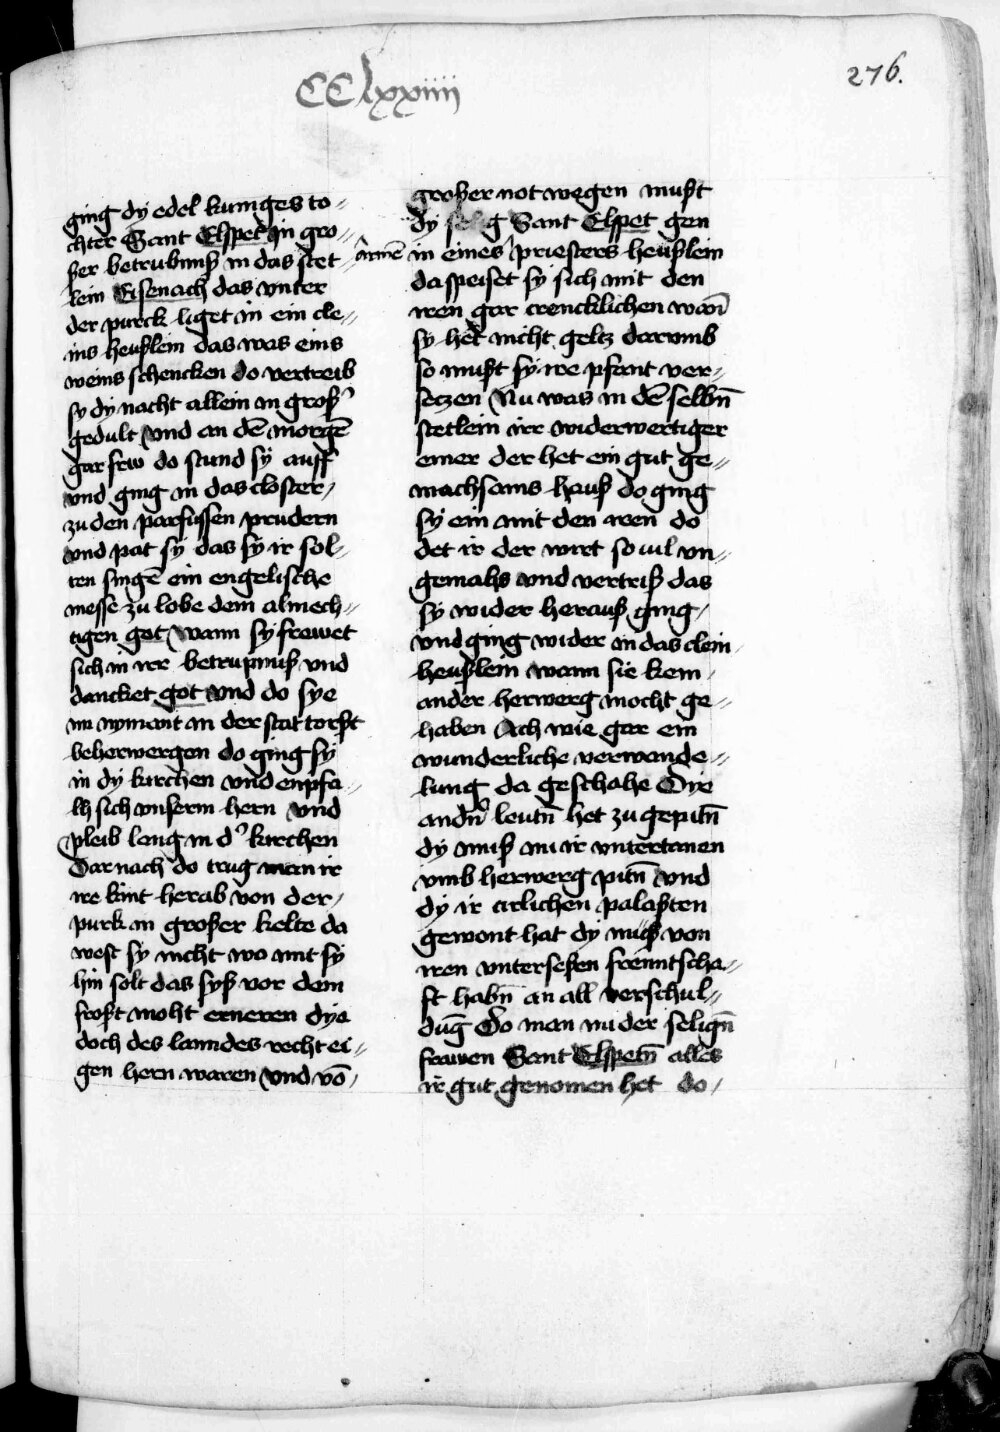 CClxxiiii
276.
ging dy edel kuniges to⸗
chter Sant Elspet in gro⸗
ßer betrubnuß in das stet
lein Eisenach das vnter
der purck liget in ein cle⸗
ins heußlein das was eins
weins schencken do vertreib
sy dy nacht allein in groß'
gedult vnd an dē morgē
gar frw do stund sy auff
vnd ging in das closter
zu den parfussen prudern
vnd pat sy das sy ir sol⸗
ten singē ein engelische
messe zu lobe dem almech⸗
tigen got wann sy frewet
sich in irr betrupnuß vnd
dancket got vnd do sye
nu nymant in der stat torst
beherwergen do ging sy
in dy kirchen vnd enpfa⸗
lh sich vnserm hern vnd
pleib lang in d' kirchen
Dar nach do trug man ir
ire kint herab von der
purk in großer kelte da
west sy nicht wo mit sy
hin solt das syß vor dem
frost moht erneren dye
doch des lanndes recht ei⸗
gen hern waren vnd vō
großer not wegen must
dy selig Sant Elspet gen
armē in eines priesters heußlein
da speiset sy sich mit den
iren gar crencklichen wan̄
sy het nicht geltz darumb
so must sy ire pfant ver⸗
setzen Nu was in dē selbn̄
stetlein irr widerwertiger
einer der het ein gut ge⸗
machsams hauß do ging
sy ein mit den iren do
det ir der wirt so uil vn⸗
gemahs vnd vertriß das
sy wider herauß ging
vnd ging wider in das clein
heußlein wann sie kein
ander herwerg mocht ge⸗
haben Ach wie gar ein
wunderliche verwande⸗
lung da geschahe Dye
andn̄ leutn̄ het zu gepitn̄
dy muß nu ir vntertanen
vmb herwerg pitn̄ vnd
dy ir erlichen palasten
gewont hat dy muß von
iren vnterseßen freuntscha⸗
ft habn̄ an all verschul⸗
dūg Do man nu der selign̄
frawen Sant Elspetn̄ alles
ir gut genomen het do